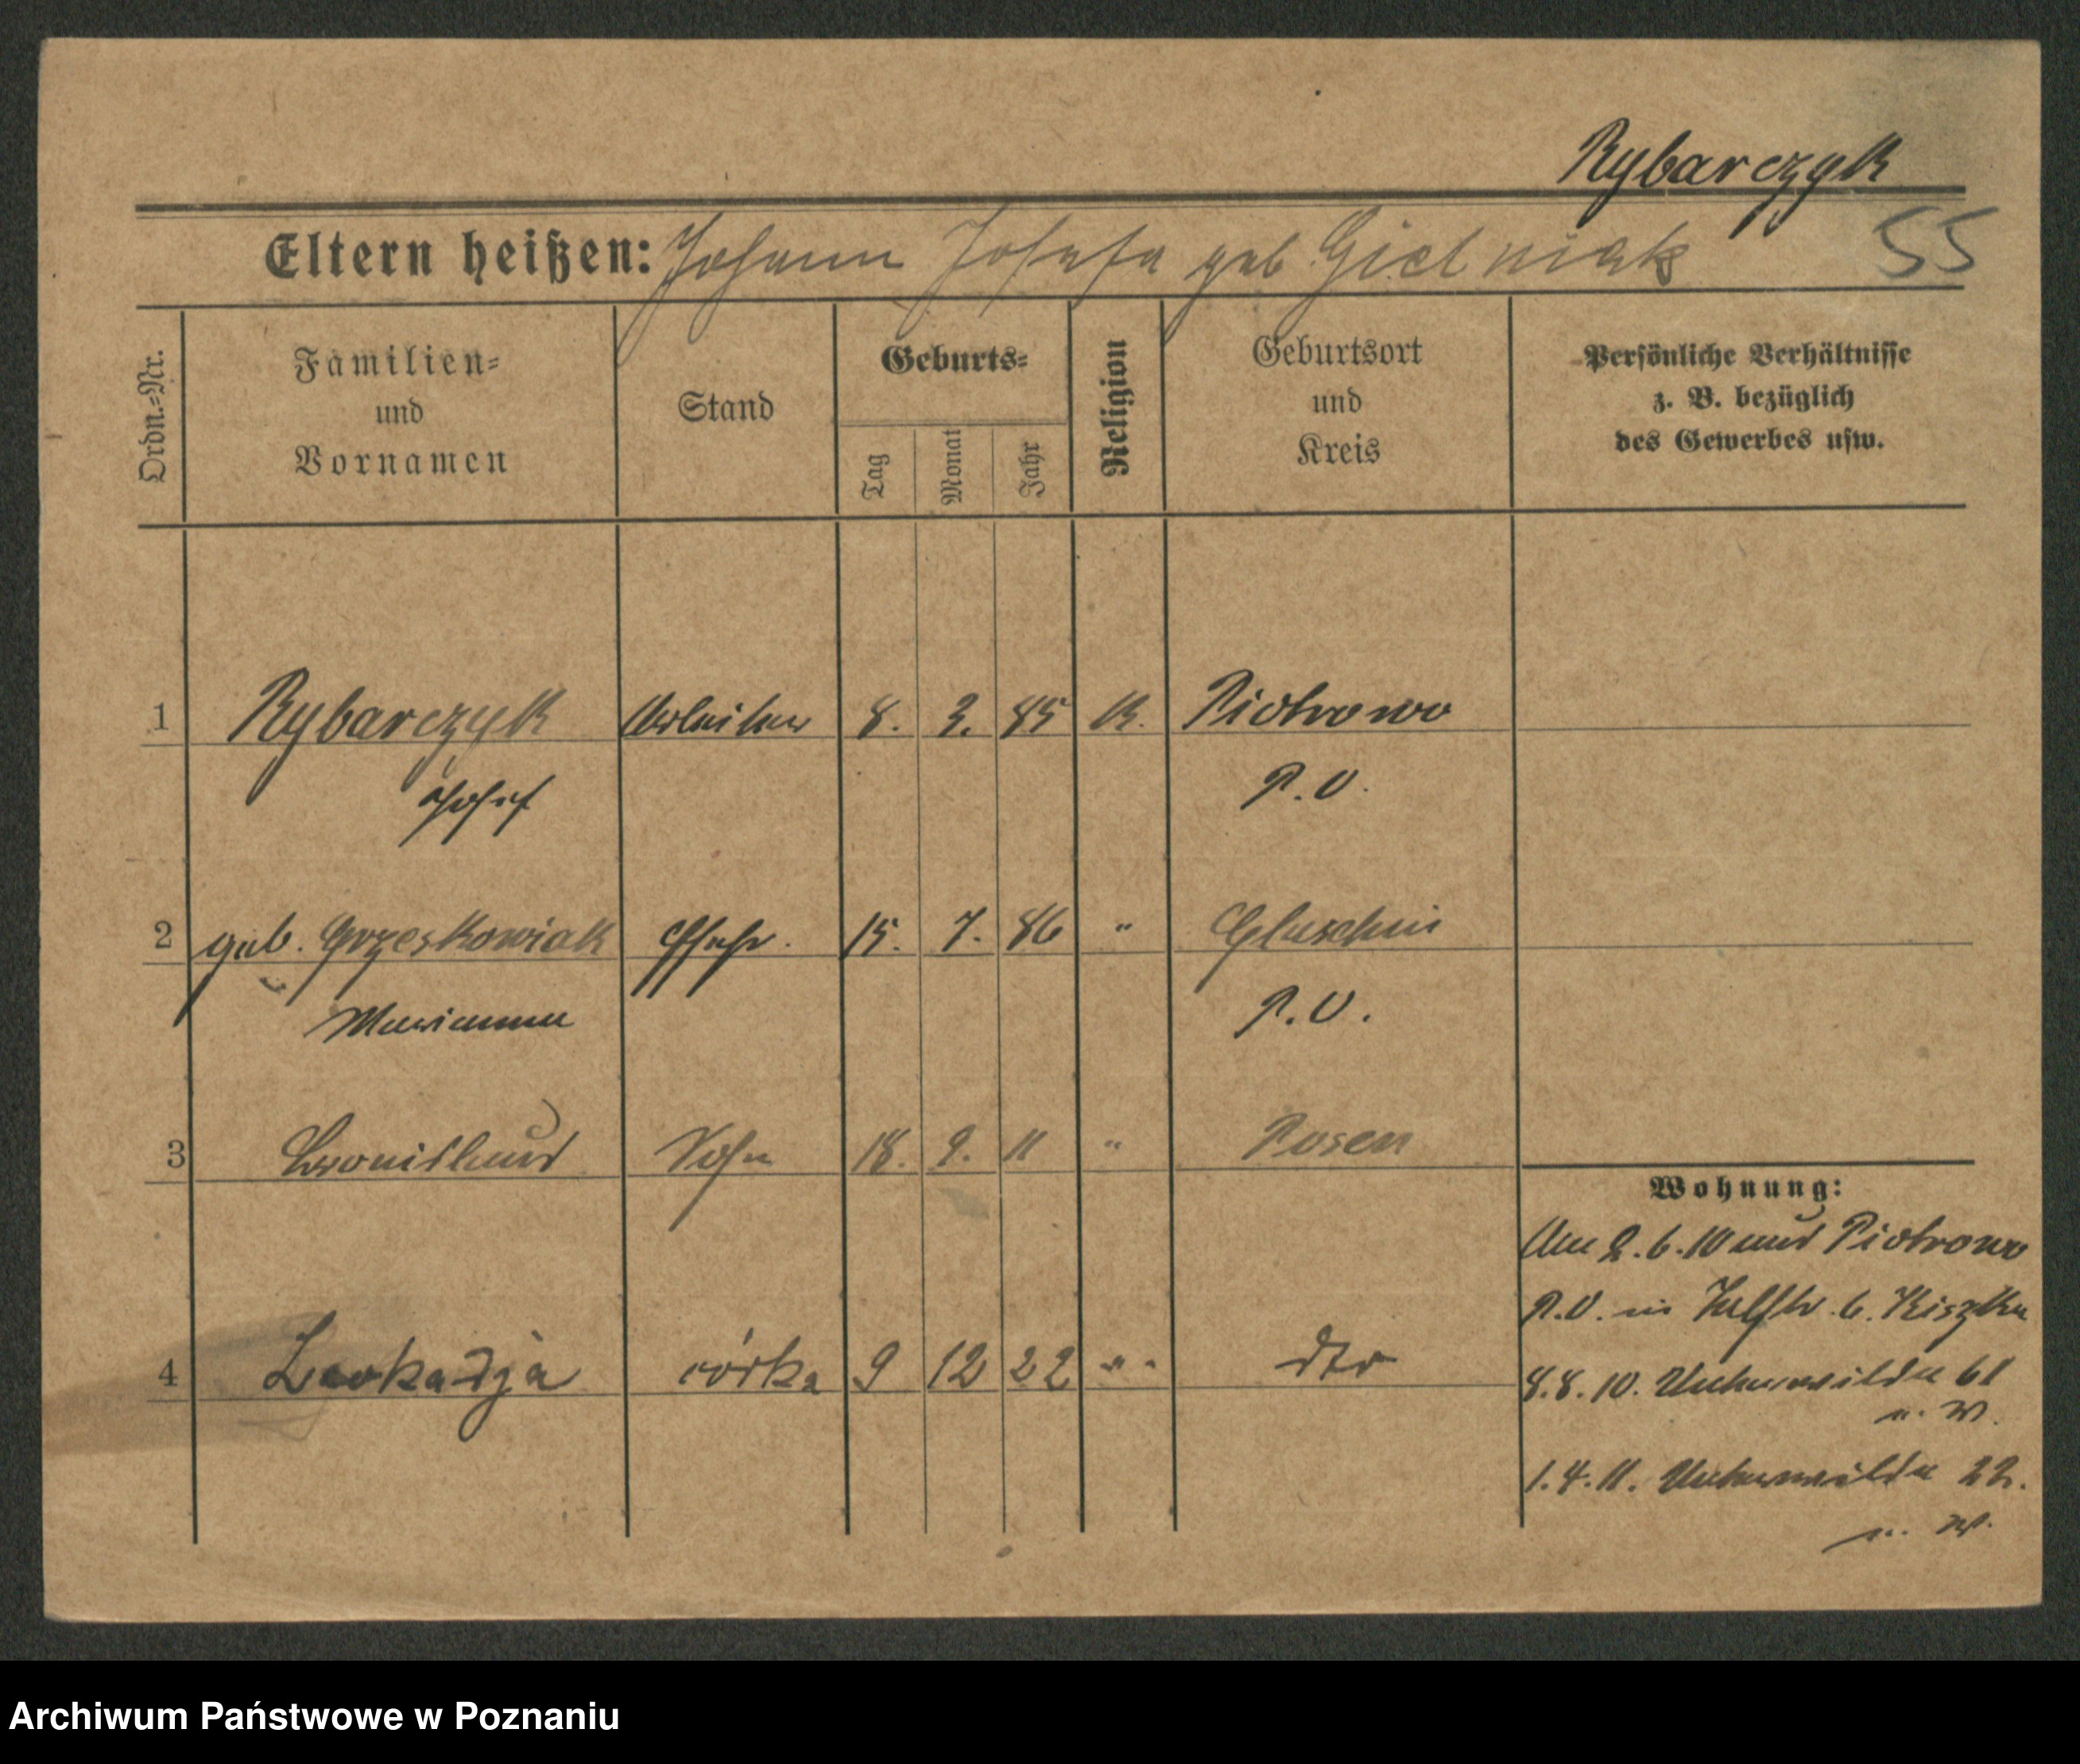 Rybarczyk
Eltern heißen: Johann Josefa geb Gielniak 55
Ordn.=Nr.
Familien=
und
Vornamen
Stand
Geburts=
Tag
Monat
Jahr
Religion
Geburtsort
und
Kreis
Persönliche Verhältnisse
z. B. bezüglich
des Gewerbes usw.
1 Rybarczyk Arbeiter 8. 3. 85 K. Piotrowo
Josef P.O.
2 geb. Grzeskowiak Ehefr. 15. 7. 86 " Gluschin
Marianna P.O.
3 Bronislaus Sohn 18. 9. 11 " Posen
Wohnung:
Am 2.6.10 aus Piotrowo
P.O. in 6. Kiszka
4 Leokadja córka 9 12 22 " dto
8.8.10. Unterwilda 61
n. W.
1.4.11. Unterwilda 22.
n. W.
Archiwum Państwowe w Poznaniu